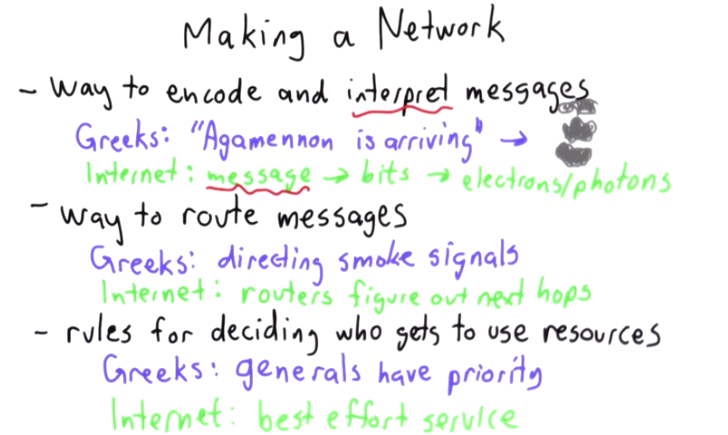 Making a Network
- way to encode and interpret messages
Greeks: "Agamennon is arriving" →
Internet: message → bits → electrons/photons
- way to route messages
Greeks: directing smoke signals
Internet: routers figure out next hops
- rules for deciding who gets to use resources
Greeks: generals have priority
Internet: best effort service